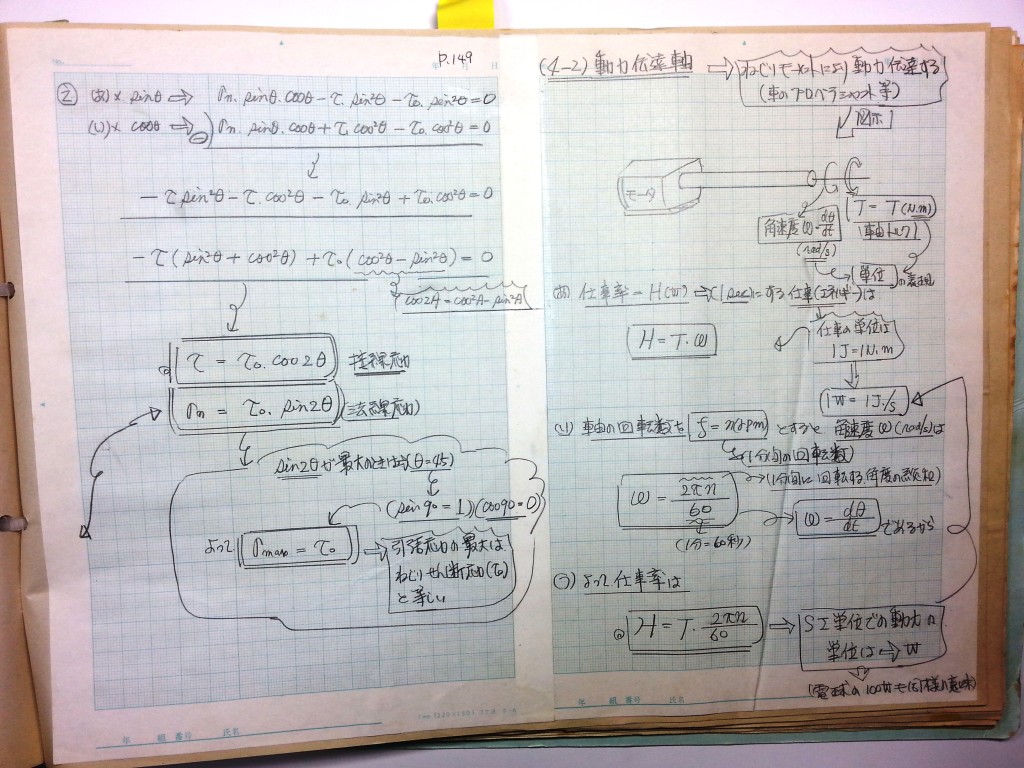 P.149
② (あ)×sinθ ⇒ σn.sinθ.cosθ−τ.sin²θ−τo.sin²θ=0
(い)×cosθ ⇒ ⊖) σn.sinθ.cosθ+τ.cos²θ−τo.cos²θ=0
−τsin²θ−τ.cos²θ−τo.sin²θ+τo.cos²θ=0
−τ(sin²θ+cos²θ)+τo(cos²θ−sin²θ)=0
cos2A=cos²A−sin²A
τ=τo.cos2θ 接線応力
σn=τo.sin2θ (法線応力)
sin2θが最大のときは(θ=45)
(sin90=1)(cos90=0)
よって σmax=τo → 引張応力の最大は
ねじりせん断応力(τo)
と等しい
年 組 番号 氏名
(4-2)動力伝達軸 ⇒ ねじりモーメントにより動力伝達する
(車のプロペラシャフト等)
図示
モータ
T=T(N.m)
角速度ω=dθ/dt (軸トルク)
(rad/s)
単位の表現
(あ)仕事率=H(W) ⇒(1sec)にする仕事(エネルギー)は
H=T.ω
仕事の単位は
1J=1N.m
1W=1J/s
(い)軸の回転数を f=n(rpm) とすると 角速度ω(rad/s)は
(1分間の回転数)
ω=2πn/60 →(1分間に回転する角度の総和)
ω=dθ/dt であるから
(1分=60秒)
(う)よって仕事率は
H=T.2πn/60 → SI単位での動力の
単位は⇒W
(電球の100Wも同様の意味)
年 組 番号 氏名